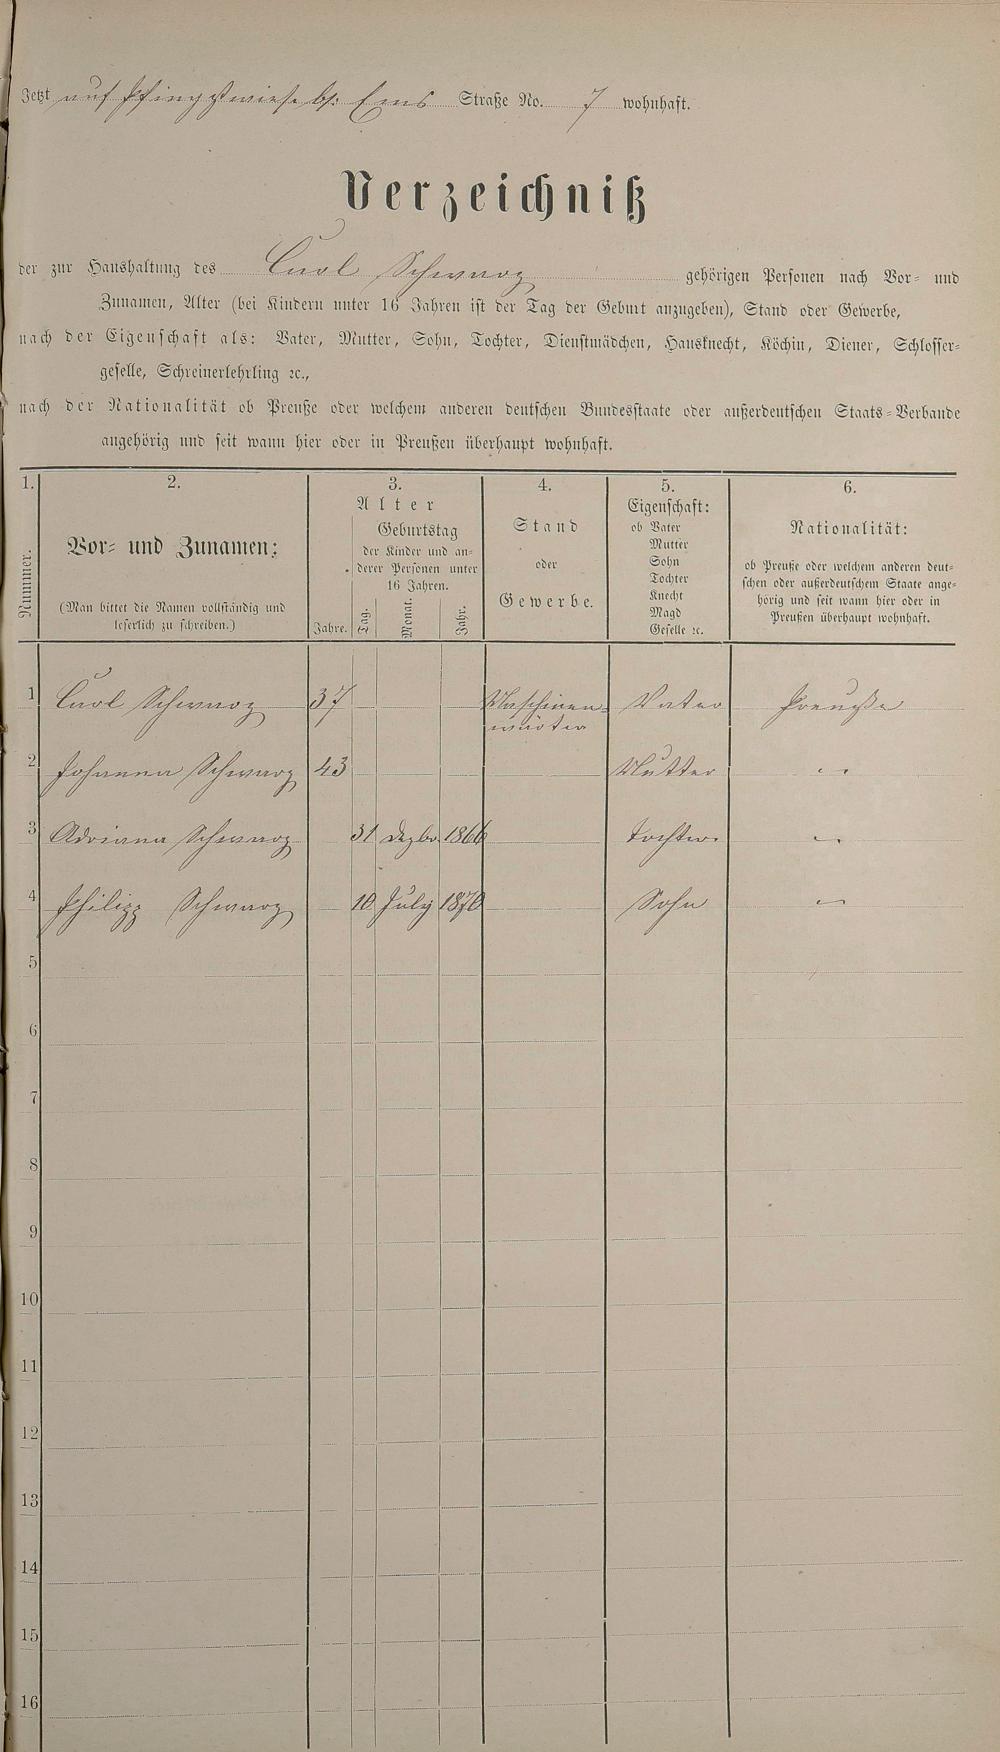 Jetzt auf Pfingstwiese b/. Ems Straße No. 7 wohnhaft.
Verzeichniß
der zur Haushaltung des Carl Schwarz gehörigen Personen nach Vor- und
Zunamen, Alter (bei Kindern unter 16 Jahren ist der Tag der Geburt anzugeben), Stand oder Gewerbe,
nach der Eigenschaft als: Vater, Mutter, Sohn, Tochter, Dienstmädchen, Hausknecht, Köchin, Diener, Schlosser-
geselle, Schreinerlehrling ꝛc.,
nach der Nationalität ob Preuße oder welchem anderen deutschen Bundesstaate oder außerdeutschen Staats-Verbande
angehörig und seit wann hier oder in Preußen überhaupt wohnhaft.
1. 2. 3. 4. 5. 6.
Nummer.
Vor- und Zunamen:
(Man bittet die Namen vollständig und
leserlich zu schreiben.)
Alter
Geburtstag
der Kinder und an-
derer Personen unter
16 Jahren.
Jahre. Tag. Monat. Jahr.
Stand
oder
Gewerbe.
Eigenschaft:
ob Vater
Mutter
Sohn
Tochter
Knecht
Magd
Geselle ꝛc.
Nationalität:
ob Preuße oder welchem anderen deut-
schen oder außerdeutschem Staate ange-
hörig und seit wann hier oder in
Preußen überhaupt wohnhaft.
1 Carl Schwarz 37 Maschinen- Vater Preuße
wärter
2 Johanna Schwarz 43 Mutter "
3 Adriana Schwarz 31 Dezbr. 1866 Tochter "
4 Philipp Schwarz 10 July 1870 Sohn "
5
6
7
8
9
10
11
12
13
14
15
16